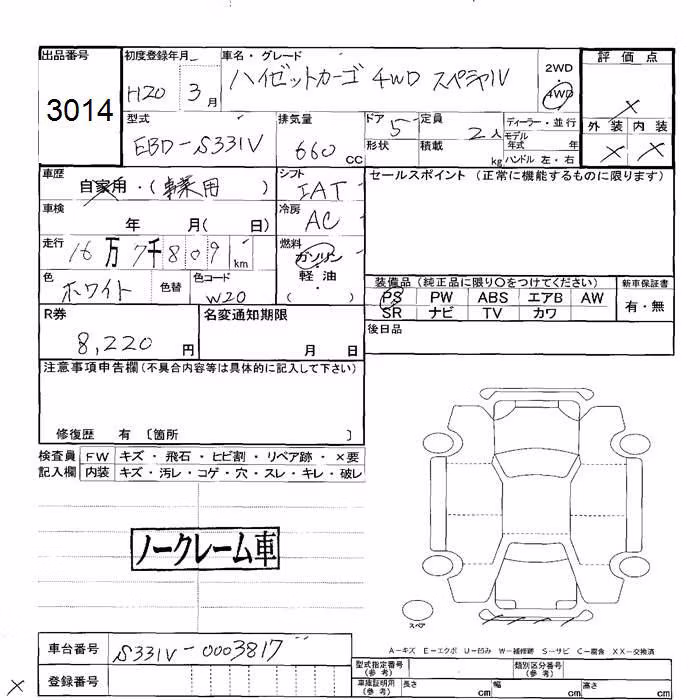 出品番号
3014
初度登録年月
H20 3月
車名・グレード
ハイゼットカーゴ 4WD スペシャル
2WD
・
4WD
評価点
×
外装 内装
× ×
型式
EBD-S331V
排気量
660 CC
ドア
5
定員
2人
形状
積載
kg
ディーラー・並行
モデル年式 年
ハンドル 左・右
車歴
自家用・(事業用 )
シフト
IAT
セールスポイント (正常に機能するものに限ります)
車検
年 月( 日)
冷房
AC
走行
16万7千809km
燃料
ガソリン
・
軽・油
( )
色
ホワイト
色替
色コード
W20
装備品 (純正品に限り〇をつけてください)
PS PW ABS エアB AW
SR ナビ TV カワ
新車保証書
有・無
R券
8,220円
名変通知期限
月 日
後日品
注意事項申告欄(不具合内容等は具体的に記入して下さい)
修復歴 有 〔箇所 〕
検査員 FW キズ・飛石・ヒビ割・リペア跡・×要
記入欄 内装 キズ・汚レ・コゲ・穴・スレ・キレ・破レ
ノークレーム車
スペア
A-キズ E-エクボ U-凹み W-補修跡 S-サビ C-腐食 XX-交換済
車台番号
S331V-0003817
登録番号
×
型式指定番号
(参考)
類別区分番号
(参考)
車庫証明用
(参考)
長さ cm 幅 cm 高さ cm